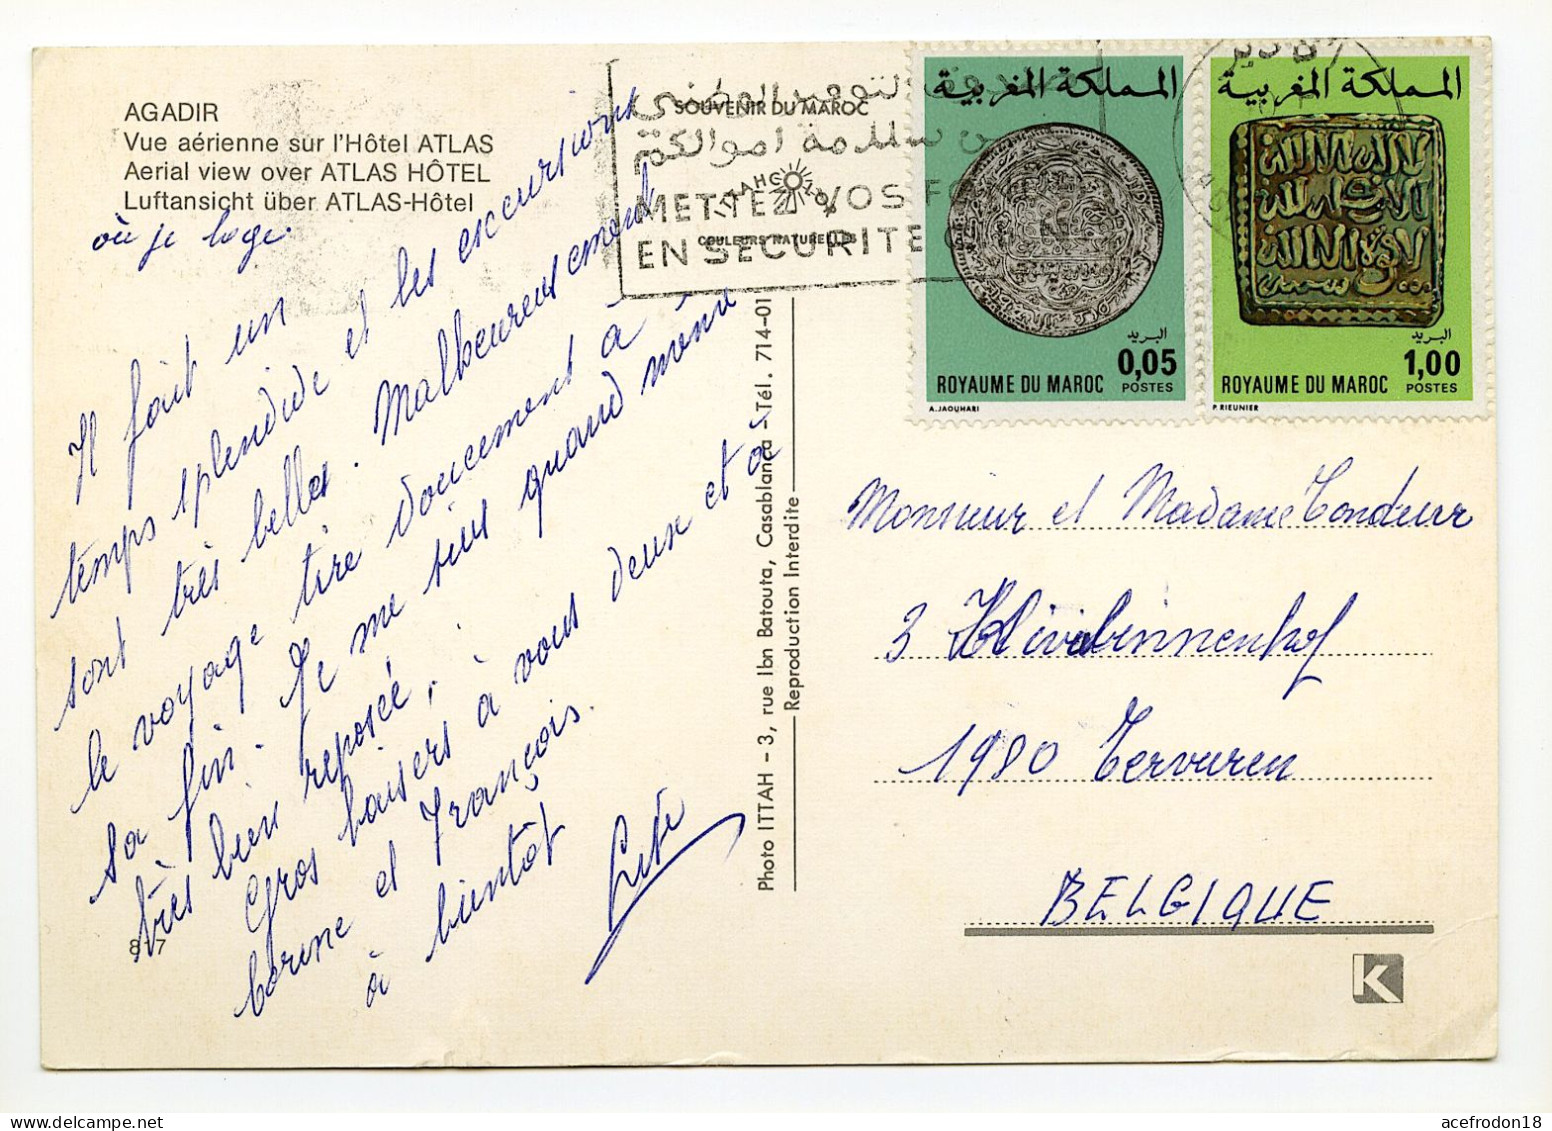 AGADIR
Vue aérienne sur l'Hôtel ATLAS
Aerial view over ATLAS HÔTEL
Luftansicht über ATLAS-Hôtel
où je loge.
Il fait un
temps splendide et les excursions
sont très belles. Malheureusement
le voyage tire doucement à
sa fin. Je me suis quand même
très bien reposée,
Gros baisers à vous deux et à
et François.
à bientôt
817
SOUVENIR DU MAROC
COULEURS NATURELLES
METTEZ VOS
EN SECURITE
Photo ITTAH – 3, rue Ibn Batouta, Casablanca – Tél. 714-01
Reproduction Interdite
المملكة المغربية
البريد
0,05
ROYAUME DU MAROC POSTES
A. JAOUHARI
المملكة المغربية
البريد
1,00
ROYAUME DU MAROC POSTES
P. RIEUNIER
Monsieur et Madame
3
1980 Tervuren
BELGIQUE
K
acefrodon18